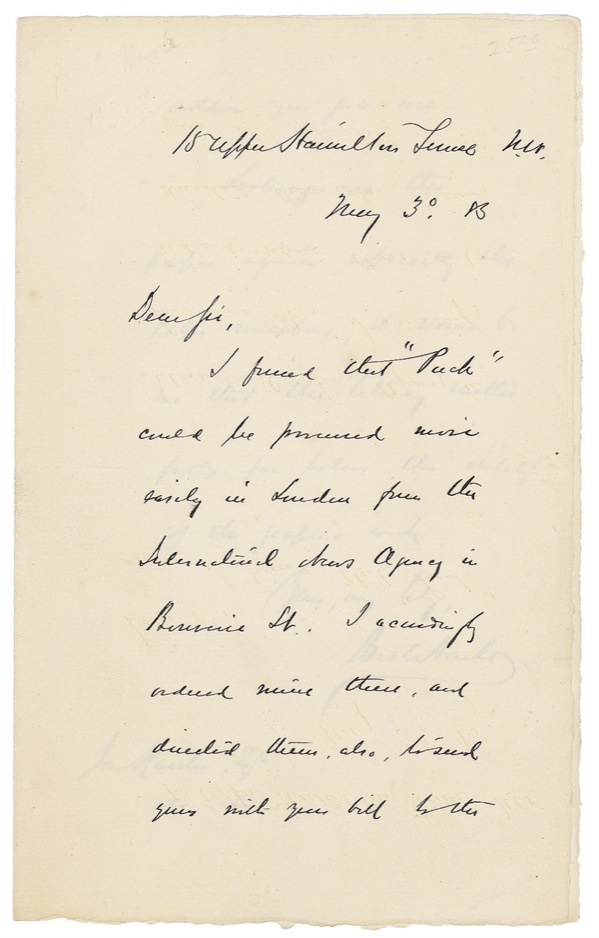 15 Upper Hamilton Terrace N.W.
May 3º. 83
Dear Sir,
I found that "Puck"
could be procured more
easily in London from the
International News Agency in
Bouverie St.. I accordingly
ordered mine there, and
directed them, also, to send
yours with your bill to the